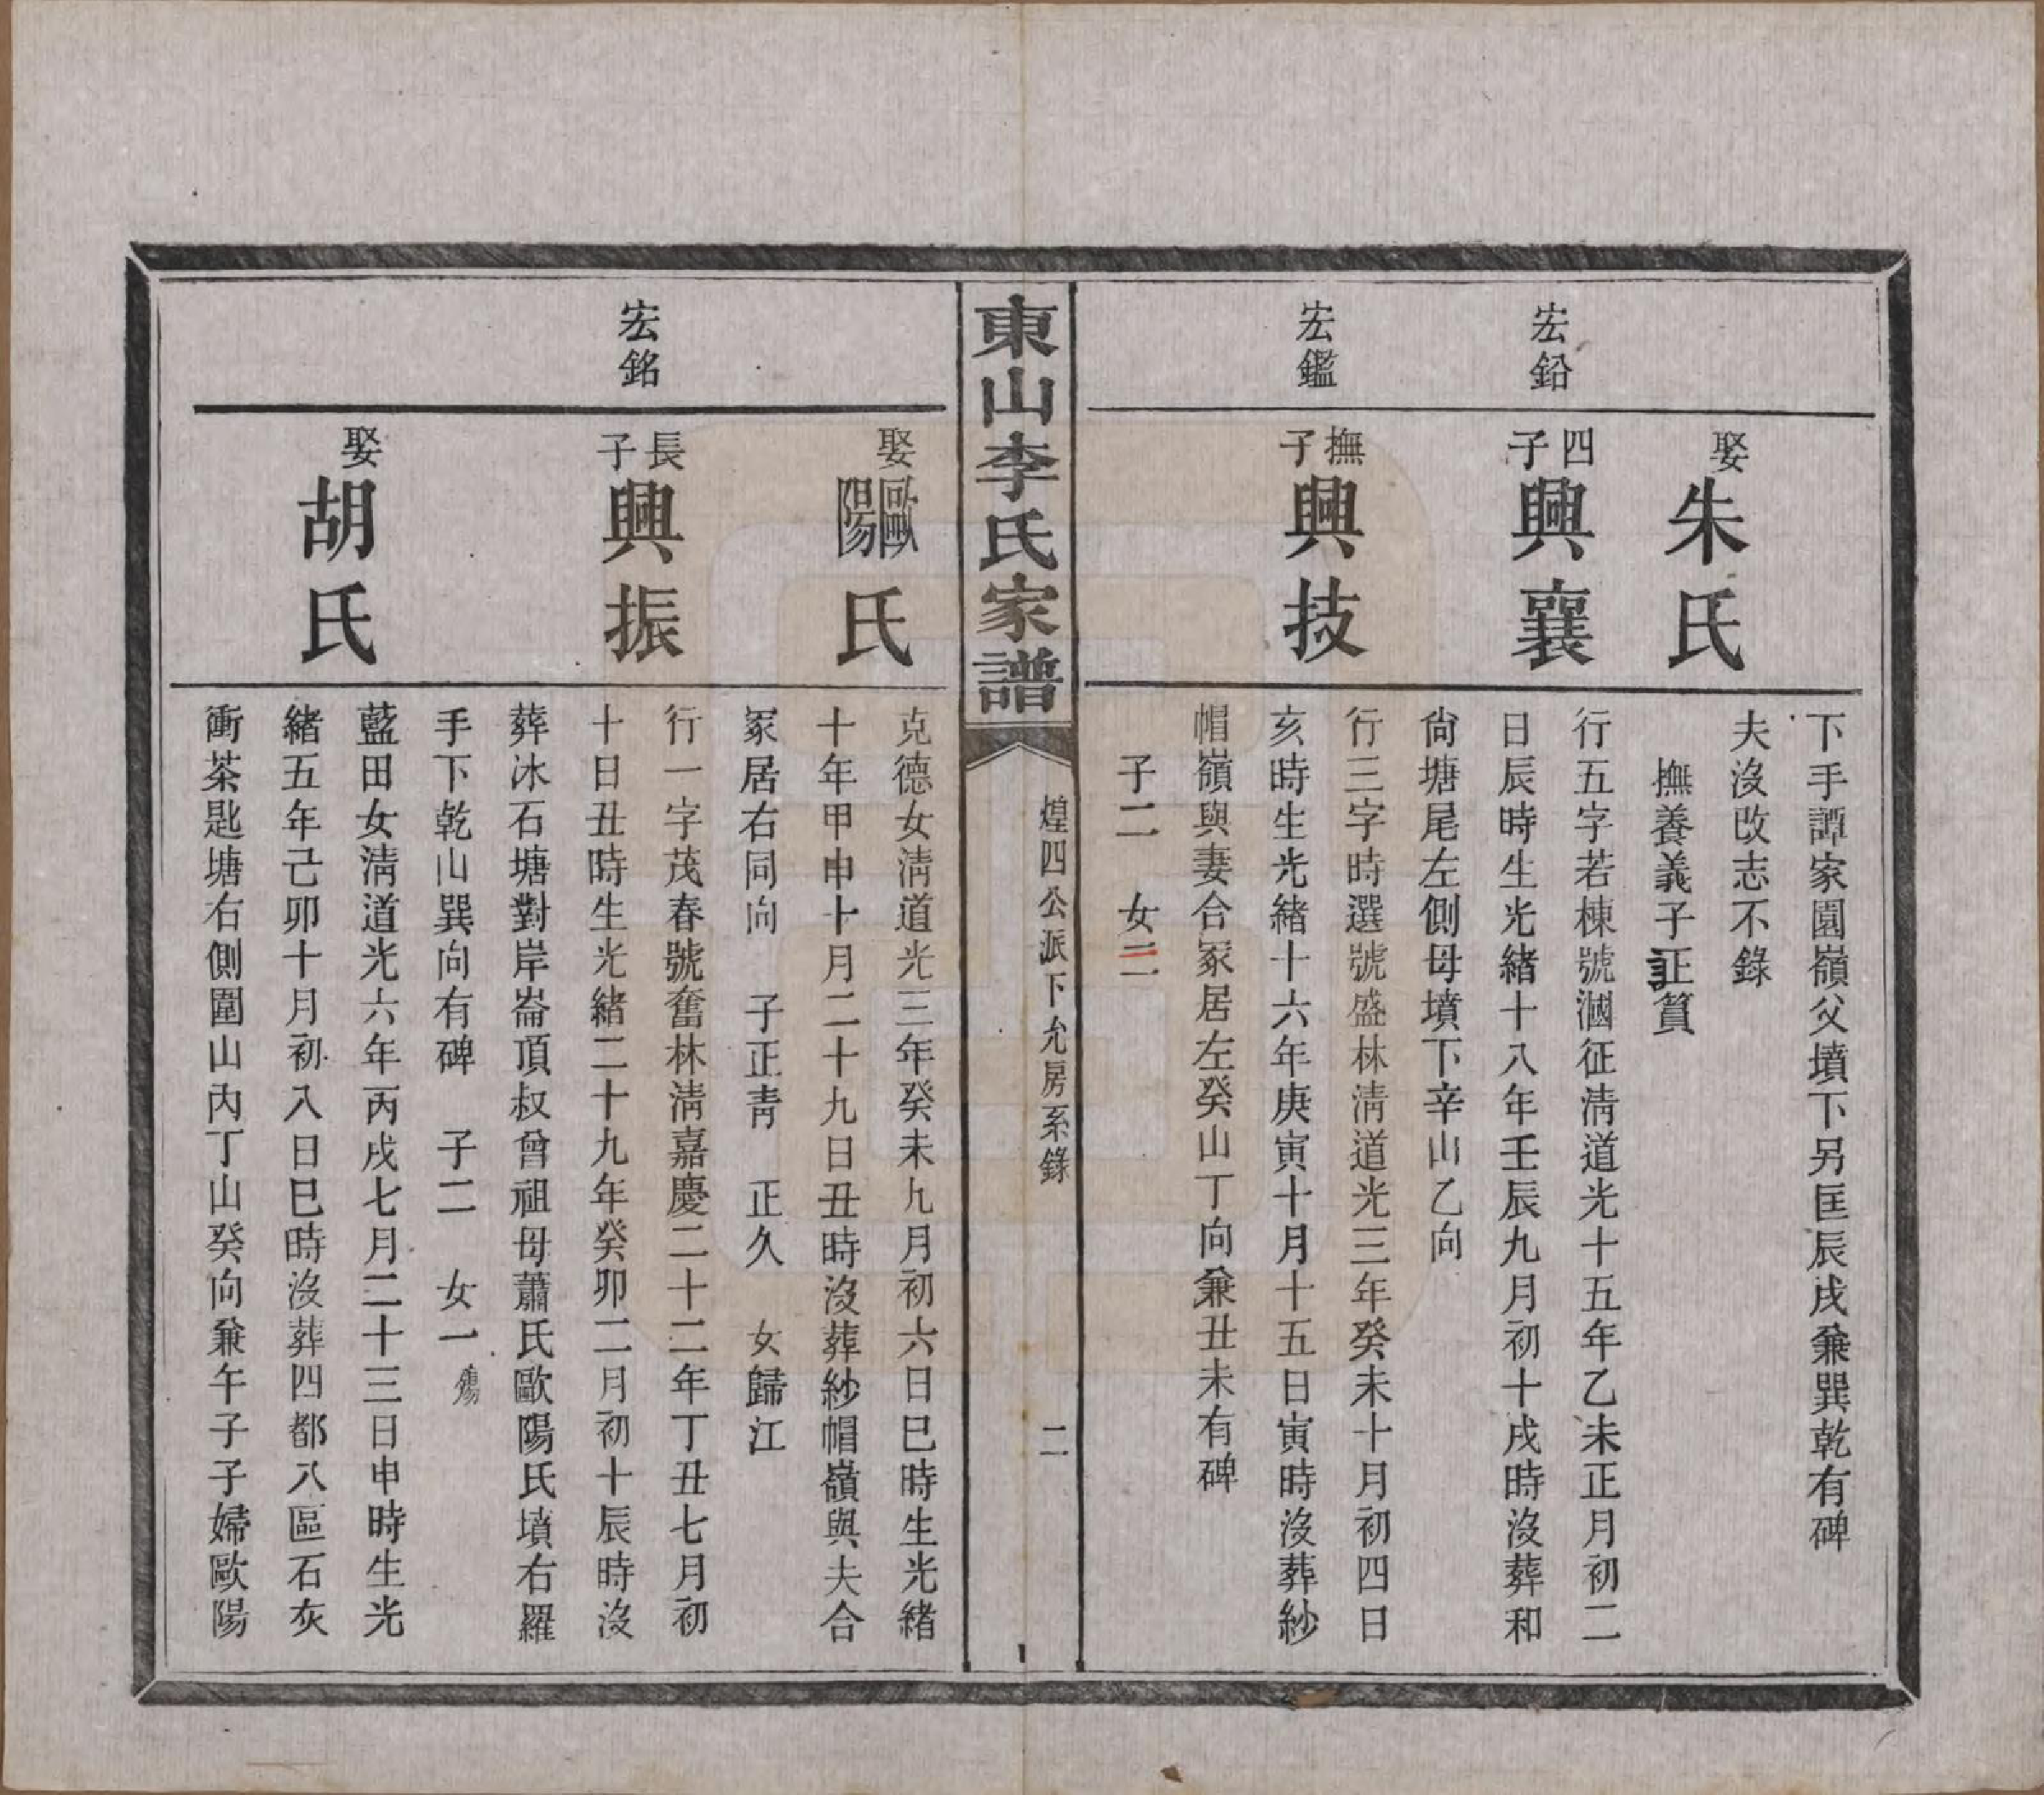 下手譚家園嶺父墳下另匡辰戌兼巽乾有碑
娶朱氏
夫沒改志不錄
撫養義子正質
宏鉛
四子興襄
行五字若棟號漍征淸道光十五年乙未正月初二
日辰時生光緒十八年壬辰九月初十戌時沒葬和
尙塘尾左側母墳下辛山乙向
宏鑑
撫子興技
行三字時選號盛林淸道光三年癸未十月初四日
亥時生光緒十六年庚寅十月十五日寅時沒葬紗
帽嶺與妻合冢居左癸山丁向兼丑未有碑
子二 女二
東山李氏家譜
煌四公派下允房系錄
二
娶歐陽氏
克德女淸道光三年癸未九月初六日巳時生光緒
十年甲申十月二十九日丑時沒葬紗帽嶺與夫合
冢居右同向 子正靑 正久 女歸江
宏銘
長子興振
行一字茂春號奮林淸嘉慶二十二年丁丑七月初
十日丑時生光緒二十九年癸卯二月初十辰時沒
葬冰石塘對岸崙頂叔曾祖母蕭氏歐陽氏墳右羅
手下乾山巽向有碑 子二 女一殤
娶胡氏
藍田女淸道光六年丙戌七月二十三日申時生光
緒五年己卯十月初入日巳時沒葬四都八區石灰
衝茶匙塘右側圍山內丁山癸向兼午子子婦歐陽